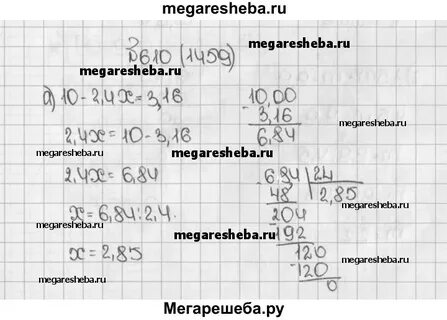 megaresheba.ru
№610 (1459)
megaresheba.ru
а) 10 - 2,4x = 3,16
2,4x = 10 - 3,16
megaresheba.ru
2,4x = 6,84
x = 6,84 : 2,4
megaresheba.ru
x = 2,85
megaresheba.ru
10,00
- 3,16
6,84
megaresheba.ru
- 6,84 | 24
48 | 2,85
- 204
192
- 120
120
0
megaresheba.ru
megaresheba.ru
Мегарешеба.ру